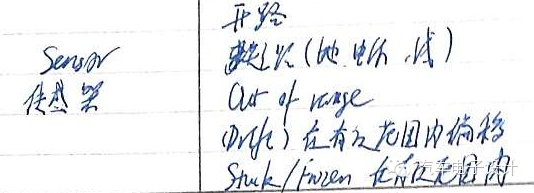 开路
Sensor
传感器
短路(地、电源、线)
Out of range
(Drift) 在有效范围内偏移
Stuck/frozen 在有效范围内